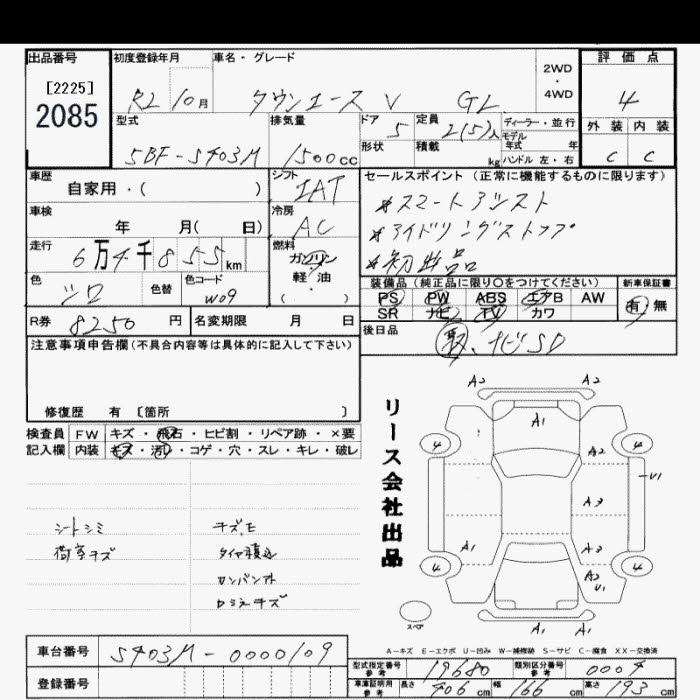 出品番号 初度登録年月 車名・グレード 2WD・4WD 評価点
[2225]
2085
R2 10月 タウンエース V GL 4
型式 排気量 ドア 定員 ディーラー・並行 外装 内装
5BF-S403M 1500cc 5 2(5)人 モデル年式 年 C C
形状 積載 kg ハンドル 左・右
車歴 シフト セールスポイント (正常に機能するものに限ります)
自家用・( ) IAT *スマートアシスト
車検 冷房 *アイドリングストップ
年 月( 日) AC *初出品
走行 燃料
6万4千855km ガソリン・軽・油 ( )
装備品 (純正品に限り○をつけてください) 新車保証書
色 色替 色コード PS PW ABS エアB AW 有・無
シロ W09 SR ナビ TV カワ
R券 8250円 名変期限 月 日 後日品
取、ナビSD
注意事項申告欄(不具合内容等は具体的に記入して下さい)
修復歴 有 〔箇所 〕
検査員 FW キズ・飛石・ヒビ割・リペア跡・×要
記入欄 内装 キズ・汚・コゲ・穴・スレ・キレ・破レ
リース会社出品
A2 A2
A1
4 4
A2
U1
A3
A1 A3
4 4
A2
U1
スペア
A1 A1
シートシミ
荷室キズ
タイヤ積込
A-キズ E-エクボ U-凹み W-補修跡 S-サビ C-腐食 XX-交換済
車台番号 S403M-0000109
型式指定番号 参考 19680 類別区分番号 参考 0004
登録番号
車庫証明用 参考 長さ 406cm 幅 166cm 高さ 193cm